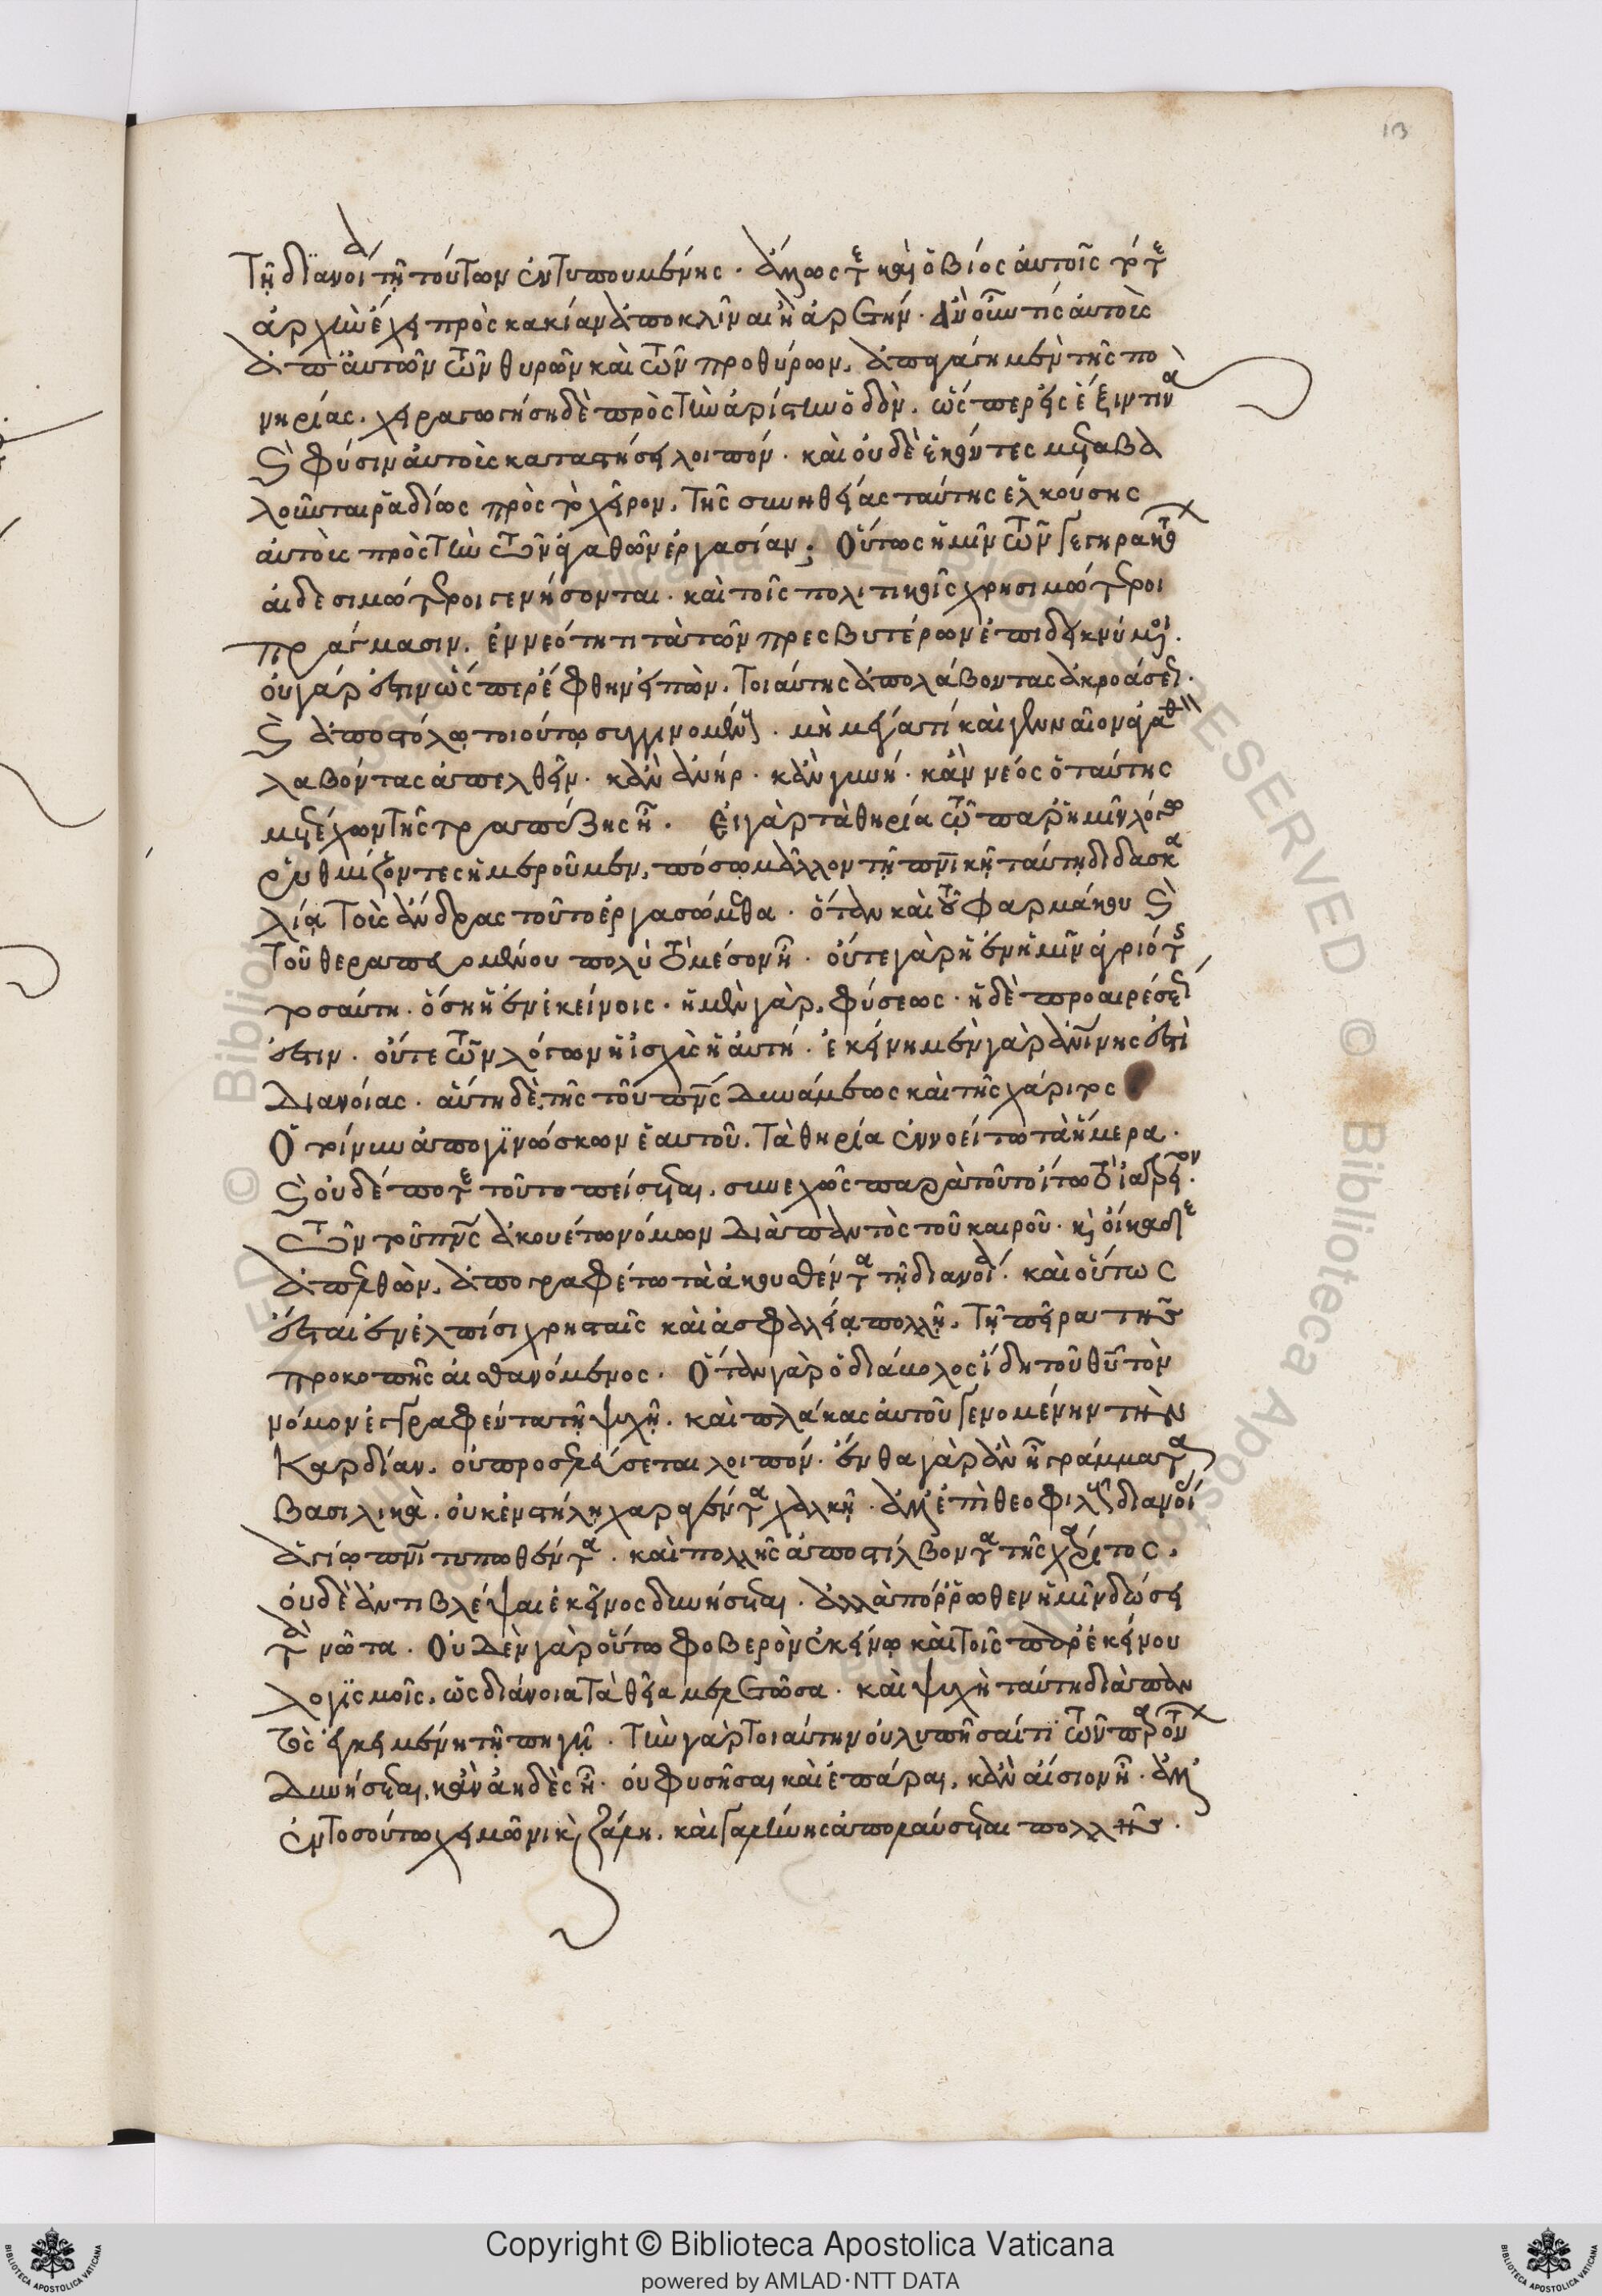 13
τῇ διανοίᾳ τῇ τούτων ἐντυπουμένης. ἄλλως τε καὶ ὁ βίος αὐτοῖς τότε
ἀρχὴν ἔχει πρὸς κακίαν ἀποκλῖναι ἢ ἀρετήν. ἂν οὖν τις αὐτοὺς
ἀπ' αὐτῶν τῶν θυρῶν καὶ τῶν προθύρων, ἀπαγάγῃ μὲν τῆς πο
νηρίας, χειραγωγήσῃ δὲ πρὸς τὴν ἀρίστην ὁδὸν, ὥσπερ εἰς ἕξιν τινὰ
καὶ φύσιν αὐτοὺς καταστήσει λοιπόν. καὶ οὐδὲ ἑκόντες μεταβα
λοῦνται ῥᾳδίως πρὸς τὸ χεῖρον, τῆς συνηθείας ταύτης ἑλκούσης
αὐτοὺς πρὸς τὴν τῶν ἀγαθῶν ἐργασίαν. Οὕτως ἡμῖν τῶν γεγηρακότων
αἰδεσιμώτεροι γενήσονται. καὶ τοῖς πολιτικοῖς χρησιμώτεροι
πράγμασιν, ἐν νεότητι τὰ τῶν πρεσβυτέρων ἐπιδεικνύμενοι.
οὐ γάρ ἐστιν ὥσπερ ἔφθην εἰπὼν, τοιαύτης ἀπολάβοντας ἀκροάσεως.
καὶ ἀποστόλῳ τοιούτῳ συγγινομένους. μὴ μέγα τι καὶ γενναῖον ἀγαθὸν
λαβόντας ἀπελθεῖν. κἂν ἀνήρ. κἂν γυνή. κἂν νέος ὁ ταύτης
μετέχων τῆς τραπέζης ᾖ. Εἰ γὰρ τὰ θηρία τῷ παρ' ἡμῖν λόγῳ
ῥυθμίζοντες ἡμεροῦμεν, πόσῳ μᾶλλον τῇ πνικῇ ταύτῃ διδασκα
λίᾳ τοὺς ἄνδρας τοῦτο ἐργασόμεθα. ὅταν καὶ τοῦ φαρμάκου καὶ
τοῦ θεραπευομένου πολὺ τὸ μέσον ᾖ. οὔτε γὰρ ἡ ἐν ἡμῖν ἀγριότης
τοσαύτη. ὅση ἡ ἐν ἐκείνοις. ἡ μὲν γὰρ, φύσεως. ἡ δὲ προαιρέσεως
ἐστιν. οὔτε τῶν λόγων ἡ ἰσχὺς ἡ αὐτή. ἐκείνη μὲν γὰρ ἀνίνης ἐστὶ
διανοίας. αὕτη δὲ, τῆς τοῦ πνς δυνάμεως καὶ τῆς χάριτος
Ὁ τοίνυν ἀπογινώσκων ἑαυτοῦ, τὰ θηρία ἐννοείτω τὰ ἥμερα.
καὶ οὐδέποτε τοῦτο πείσεται, συνεχῶς παρὰ τοῦτο ἴτω τὸ ἰατρεῖον.
τῶν τοῦ πνς ἀκουέτω νόμων διὰ παντὸς τοῦ καιροῦ. καὶ οἴκαδε
ἀπελθὼν, ἀπογραφέτω τὰ ἀκουσθέντα τῇ διανοίᾳ. καὶ οὕτως
ἔσται ἐν ἐλπίσι χρησταῖς καὶ ἀσφαλείᾳ πολλῇ, τῇ πείρᾳ τῆς
προκοπῆς αἰσθανόμενος. Ὅταν γὰρ ὁ διάβολος ἴδῃ τοῦ θυ τὸν
νόμον ἐγγραφέντα τῇ ψυχῇ. καὶ πλάκας αὐτοῦ γενομένην τὴν
καρδίαν, οὐ προσελεύσεται λοιπόν. ἔνθα γὰρ ἂν ᾖ γράμματα
βασιλικὰ. οὐκ ἐν στήλῃ χαραχθέντα χαλκῇ. ἀλλ' ἐπὶ θεοφιλοῦς διανοίας
ἁγίῳ πνι τυπωθέντα. καὶ πολλῆς ἀποστίλβοντα τῆς χάριτος,
οὐδὲ ἀντιβλέψαι ἐκεῖνος δυνήσεται. ἀλλὰ πόρρωθεν ἡμῖν δώσει
τὰ νῶτα. Οὐδὲν γὰρ οὕτω φοβερὸν ἐκείνῳ καὶ τοῖς παρ' ἐκείνου
λογισμοῖς, ὡς διάνοια τὰ θεῖα μελετῶσα. καὶ ψυχὴ ταύτῃ διὰ παν
τὸς ἐγκειμένη τῇ πηγῇ. τὴν γὰρ τοιαύτην οὐ λυπῆσαί τι τῶν παρόντων
δυνήσεται, κἂν ἀηδὲς ᾖ. οὐ φυσῆσαι καὶ ἐπᾶραι, κἂν αἴσιον ᾖ. ἀλλ'
ἐν τοσούτῳ χειμῶνι καὶ ζάλῃ, καὶ γαλήνης ἀπολαύσεται πολλῆς.
Copyright © Biblioteca Apostolica Vaticana
powered by AMLAD·NTT DATA